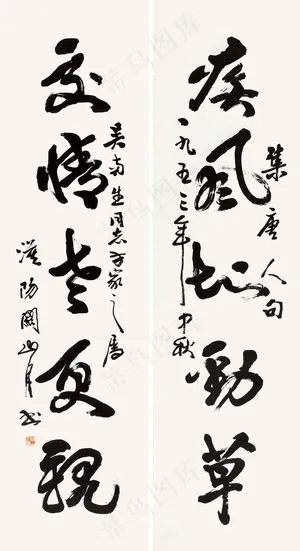 疾風知勁草
集唐人句
一九五三年中秋
交情老更親
吴南生同志方家之属
漠陽關山月书
菜鸟图库